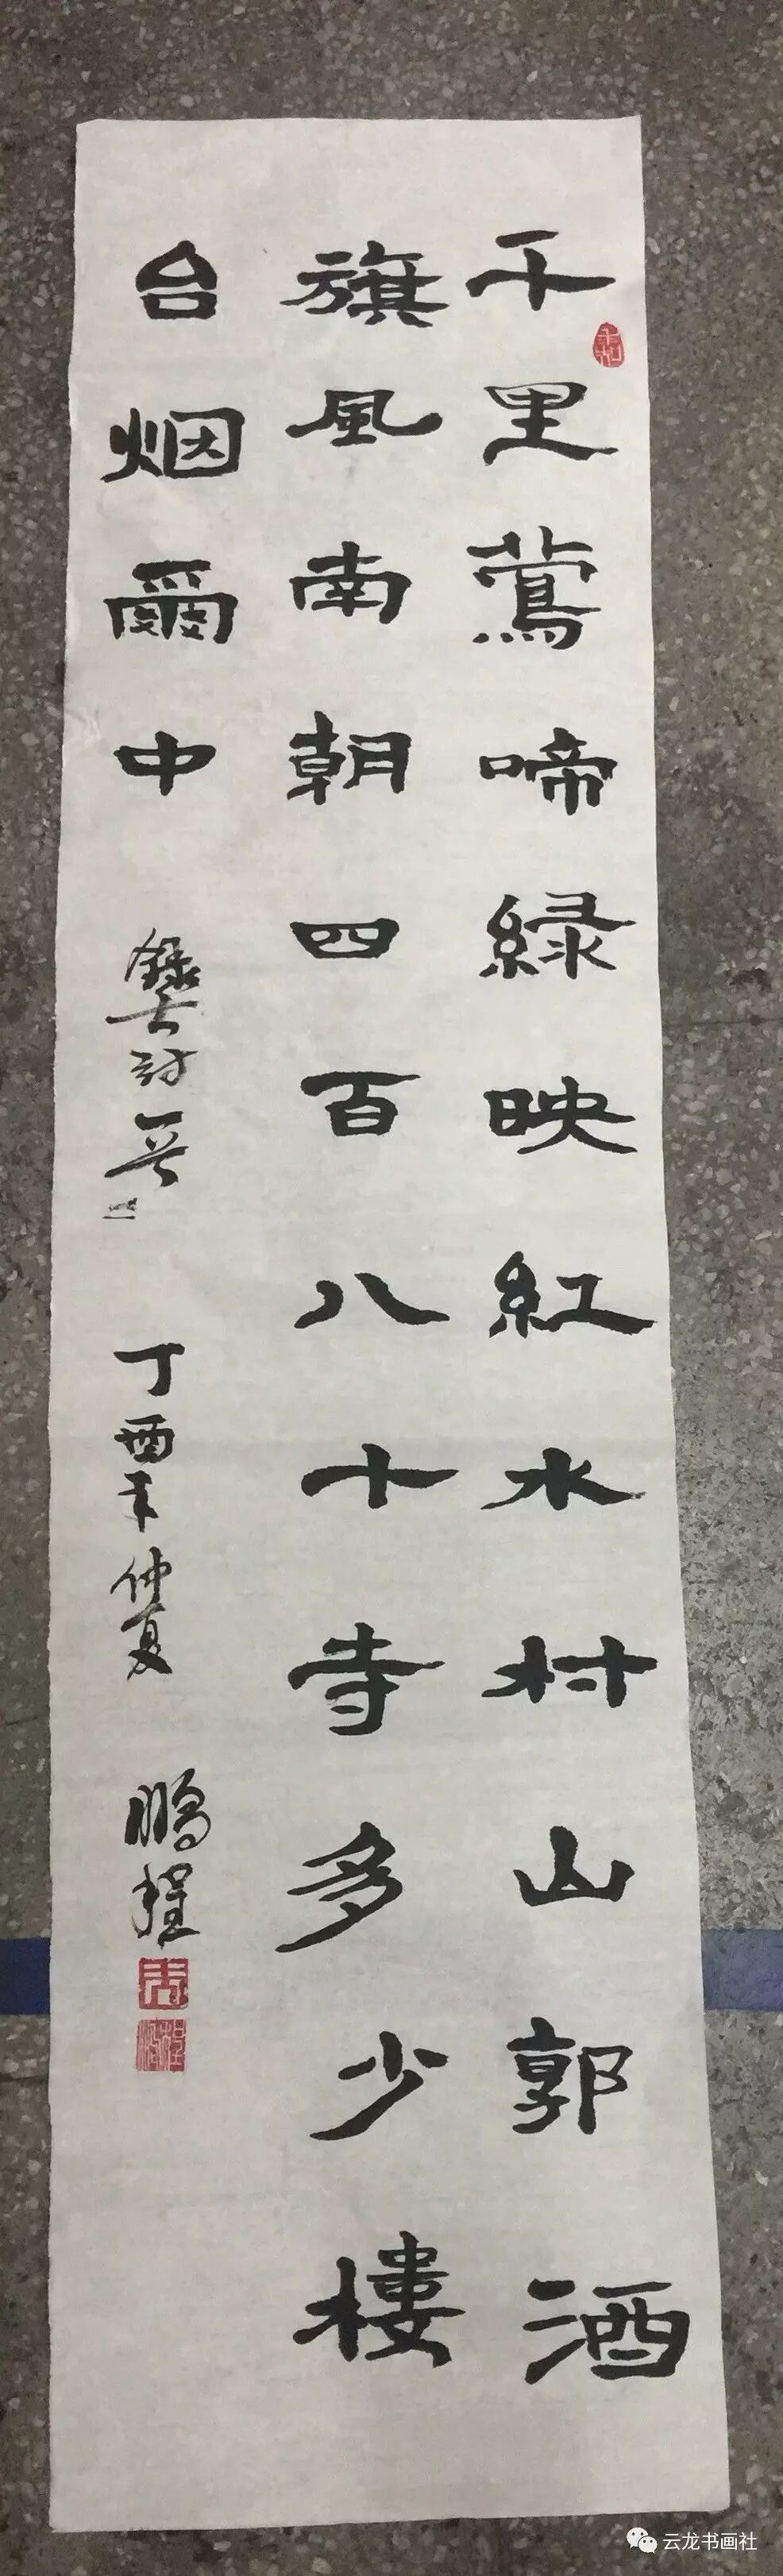 千里鶯啼緑映紅水村山郭酒
旗風南朝四百八十寺多少樓
台烟爾中 錄古詩一首 丁酉年仲夏 鵬程
云龙书画社